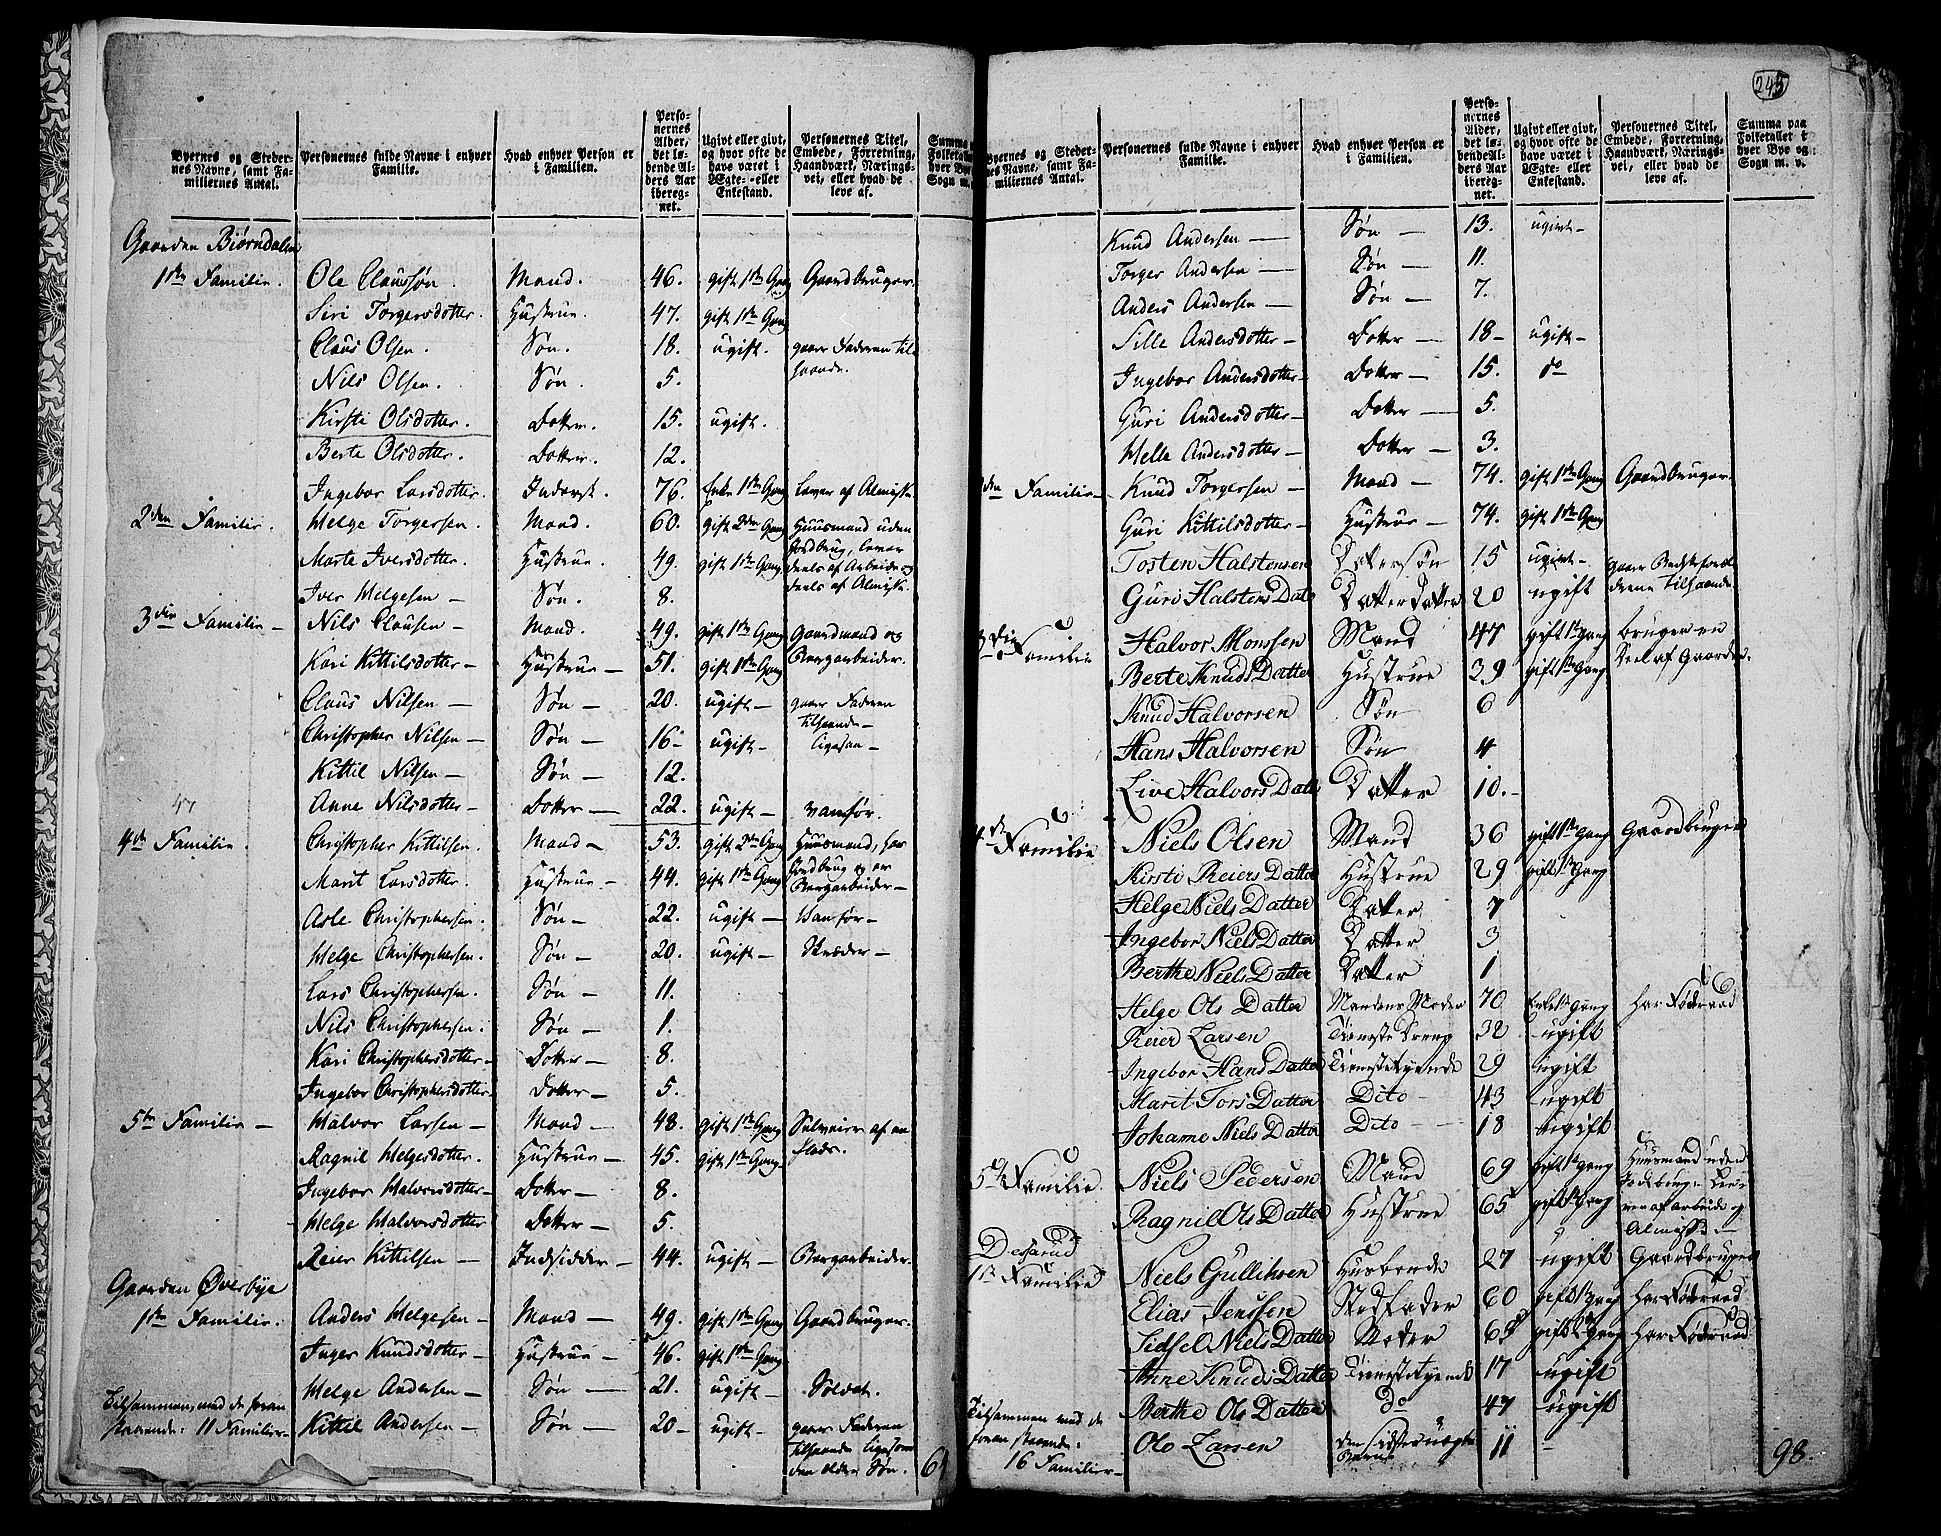 Byernes og Steder-
nes Navne, samt Fa-
miliernes Antal.
Personernes fulde Navne i enhver
Familie.
Hvad enhver Person er
i Familien.
Perso-
nernes
Alder,
det lø-
bende Al-
ders Aar
ibereg-
net.
Ugivt eller givt,
og hvor ofte de
have været i
Ægte- eller
Enkestand.
Personernes Titel,
Embede, Forretning,
Haandværk, Nærings-
vei, eller hvad de
leve af.
Summa
Folketallet
hver Bye
Sogn m.
Gaarden Biørndalen
1ste Familie. Ole Claussøn. Mand. 46. gift 1ste Gang Gaardbruger.
Siri Torgersdotter. Hustrue. 47. gift 1ste Gang
Claus Olsen. Søn. 18. ugift. gaaer Faderen til
haande.
Nils Olsen. Søn. 5.
Kirsti Olsdotter. Dotter. 15. ugift.
Berte Olsdotter. Dotter. 12.
Ingebor Larsdotter. Inderst. 76. Enke 1ste Gang Lever af Almisse.
2den Familie. Helge Torgersen. Mand. 60. gift 2den Gang Huusmand uden
Jordbrug, lever
deels af Arbeide og
deels af Almisse.
Marte Iversdotter. Hustrue. 49. gift 1ste Gang
Iver Helgesen – Søn. 8.
3die Familie – Nils Clausen – Mand. 49. gift 1ste Gang Gaardmand og
Bergarbeider.
Kari Kittilsdotter – Hustrue – 51. gift 1ste Gang
Claus Nilsen – Søn – 20. ugift – gaaer Faderen
tilhaande –
Christopher Nilsen – Søn – 16 – ugift – ligesaa –
Kittil Nilsen – Søn – 12.
47
Anne Nilsdotter – Dotter – 22. ugift – vanfør.
4de Familie. Christopher Kittilsen. Mand – 53. gift 2den Gang Huusmand, har
Jordbrug og er
Bergarbeider –
Marit Larsdotter. Hustrue – 44. gift 1ste Gang
Asle Christophersen. Søn – 22. ugift – Vanfør –
Helge Christophersen. Søn – 20. ugift – Skræder –
Lars Christophersen. Søn – 11.
Nils Christophersen. Søn – 1.
Kari Christophersdotter – Dotter – 8.
Ingebor Christophersdotter – Dotter – 5.
5te Familie – Halvor Larsen – Mand – 48. gift 1ste Gang Selveier af en
Plads.
Ragnil Helgesdotter. Hustrue – 45. gift 1ste Gang
Ingebor Halvorsdotter – Dotter – 8.
Helge Halvorsdotter Dotter – 5.
Reier Kittilsen – Indsidder – 44. ugift – Bergarbeider.
Gaarden Øverbye
1ste Familie. Anders Helgesen – Mand – 49. gift 1ste Gang Gaardbruger.
Inger Knudsdotter – Hustrue – 46. gift 1ste Gang
Helge Andersen – Søn – 21. ugift – Soldat.
Tilsammen, med de foran
staaende: 11 Familier – Kittil Andersen – Søn – 20 – ugift – gaaer Faderen
tilhaande ligesom
den ældre Søn.
245
Byernes og Steder-
nes Navne, samt Fa-
miliernes Antal.
Personernes fulde Navne i enhver
Familie.
Hvad enhver Person er
i Familien.
Perso-
nernes
Alder,
det lø-
bende Al-
ders Aar
ibereg-
net.
Ugivt eller givt,
og hvor ofte de
have været i
Ægte- eller
Enkestand.
Personernes Titel,
Embede, Forretning,
Haandværk, Nærings-
vei, eller hvad de
leve af.
Summa paa
Folketallet i
hver Bye og
Sogn m. v.
Knud Andersen – Søn – 13. ugivt –
Torger Andersen – Søn – 11.
Anders Andersen – Søn – 7.
Sille Andersdotter – Dotter – 18 – ugift –
Ingebor Andersdotter – Dotter – 15. do
Guri Andersdotter – Dotter – 5.
Helle Andersdotter – Dotter – 3.
den Familie – Knud Torgersen – Mand – 74. gift 1ste Gang Gaardbruger
Guri Kittilsdotter – Hustrue – 74. gift 1ste Gang
Tosten Halstensen Dattersøn 15 ugivt – gaaer Bedsteforæl
drene Tilhaande
Guri Halstens Datter Datter Datter 20 ugift
3die Familie Halvor Monssen Mand 47 gift 1te Gang bruger en
Deel af Gaarden.
Berte Knuds Datter Hustrue 39 gift 1te Gang
Knud Halvorsen Søn 6
Hans Halvorsen Søn 4
Live Halvors Datter Datter 10. –
4de Familie Niels Olsen Mand 36 gift 1te Gang Gaardbruger
Kirsti Reiers Datter Hustrue 29 gift 1te Gang
Helge Niels Datter Datter 7
Ingebor Niels Datter Datter 3
Berthe Niels Datter Datter 1
Helge Ols Datter Mandens Moder 70 Enke 1te Gang Har Føderaad
Reier Larsen Tieneste Dreng 32 ugift
Ingebor Hans Datter Tienestetyende 29 ugift
Maret Tors Datter Dito – 43 ugift
Johanne Niels Datter Dito – 18 ugift
5te Familie Niels Pedersen Mand 69 gift 1te Gang Huusmand uden
Jordbrug. Lev-
ver af arbeide og
Almisse –
Ragnil Ols Datter Hustrue 65 gift 1te Gang
Desserud
1te Familie Niels Gulliksen Husbonde 27 ugift Gaardbruger
Elias Jenssen Stedfader 60 gift 1te Gang Har Føderaad
Sidsel Niels Datter Moder 65 gift 2 Gang Har Føderaad
Anne Knuds Datter Tienestetyende 17 ugift
Berthe Ols Datter do 47 ugift
Tilsammen med de
foran staaende:
16 Familier – Ole Larsen den sidstes uægte
Barn 11 – 98.